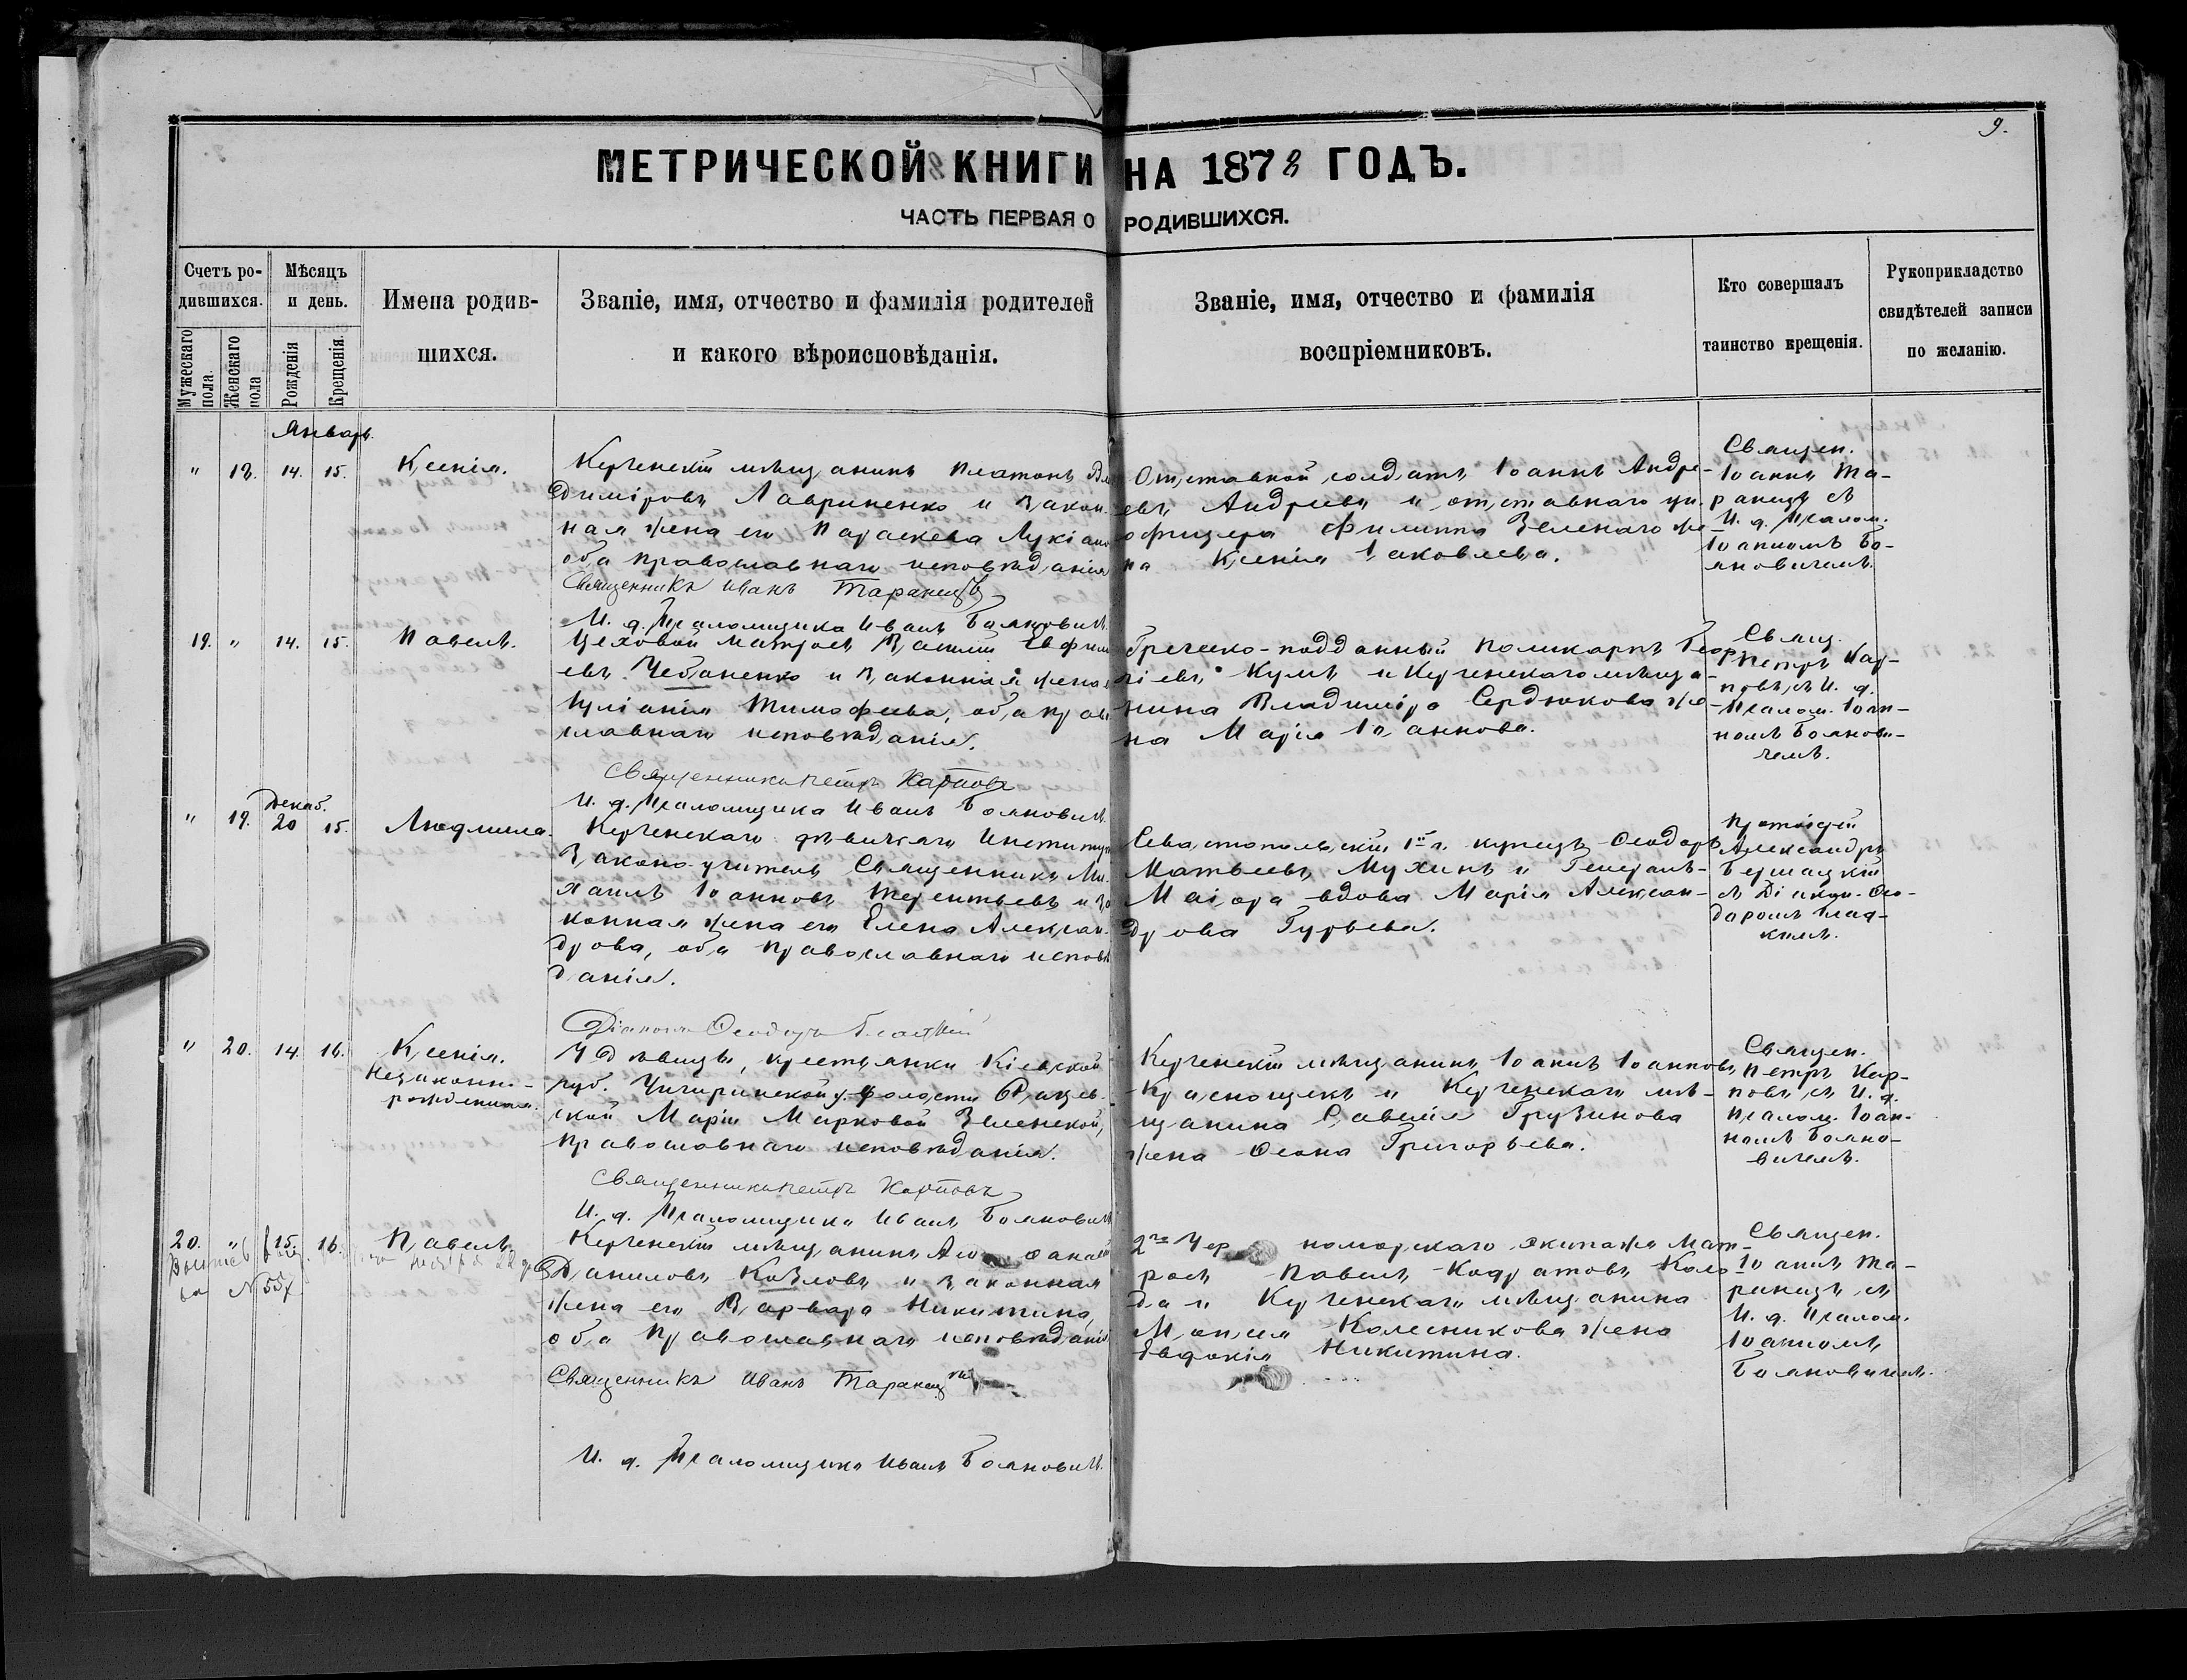 9.
МЕТРИЧЕСКОЙ КНИГИ НА 1878 ГОДЪ.
ЧАСТЬ ПЕРВАЯ О РОДИВШИХСЯ.
Счетъ ро-
дившихся.
Мужескаго пола.
Женскаго пола
Мѣсяцъ
и день.
Рожденія
Крещенія.
Имена родив-
шихся.
Званіе, имя, отчество и фамилія родителей
и какого вѣроисповѣданія.
Званіе, имя, отчество и фамилія
воспріемниковъ.
Кто совершалъ
таинство крещенія.
Рукоприкладство
свидѣтелей записи
по желанію.
Январь.
" 18. 14. 15.
Ксенія.
Керченскій мѣщанинъ Платонъ Вла
диміровъ Лавриненко и закон.
ная жена его Параскева Лукіано
оба православнаго исповѣданія
Священникъ Иванъ Таранецъ
И. д. Псаломщика Иванъ Бояновичъ
Отставной солдатъ Іоаннъ Андре-
евъ Андреевъ и отставнаго ун.
офицера Филиппа Зеленаго же-
на Ксенія Іаковлева.
Священ.
Іоаннъ Та-
ранецъ съ
И. д. Псалом.
Іоанномъ Бо-
яновичемъ.
19. " 14. 15.
Павелъ.
Цеховой матросъ Василій Евфим
евъ Чебаненко и законная жена
Іуліанія Тимофеева, оба право
славнаго исповѣданія.
Священникъ Петръ Карповъ
И. д. Псаломщика Иванъ Бояновичъ
Греческо-подданный Поликарпъ Геор-
гіевъ Кумъ и Керченскаго мѣща-
нина Владиміра Сердюкова же-
на Марія Іоаннова.
Свящ.
Петръ Кар-
повъ съ И. д.
Псалом. Іоан-
номъ Боянови-
чемъ.
Декаб.
" 19. 20 15.
Людмила.
Керченскаго дѣвичьяго Института
Законо-учитель Священникъ Ми-
хаилъ Іоанновъ Терентьевъ и за
конная жена его Елена Алексан-
дрова, оба православнаго исповѣ
данія.
Діаконъ Ѳеодоръ Гладкій
Севастопольскій 1й г. купецъ Ѳеодоръ
Матвѣевъ Мухинъ и Генералъ-
Маіора вдова Марія Алексан-
дрова Гурьева.
Протоіерей
Александръ
съ Діакон. Ѳео-
доромъ Глад-
кимъ.
" 20. 14. 16.
Ксенія.
Незаконно-
рожденная.
У дѣвицы, крестьянки Кіевской
губ. Чигиринской у. волости
ской Маріи Марковой Зеленской,
православнаго исповѣданія.
Священникъ Петръ Карповъ
И. д. Псаломщика Иванъ Бояновичъ
Керченскій мѣщанинъ Іоаннъ Іоанновъ
Краснощекъ и Керченскаго мѣ-
щанина Савелія Грузинова
жена Ѳеона Григорьева.
Священ.
Петръ Кар-
повъ съ И. д.
Псалом. Іоан-
номъ Бояно-
вичемъ.
20. " 15. 16.
Павелъ.
за № 557
Керченскій мѣщанинъ Аѳанасій
Даниловъ Козловъ и законная
жена его Варвара Никитина,
оба православнаго исповѣданія
Священникъ Иванъ Таранецъ
И. д. Псаломщика Иванъ Бояновичъ
2го Черноморскаго экипажа мат-
росъ Павелъ Кодратовъ Коло-
да и Керченскаго мѣщанина
Моисея Колесникова жена
Евдокія Никитина.
Священ.
Іоаннъ Та-
ранецъ съ
И. д. Псалом.
Іоанномъ
Бояновичемъ.